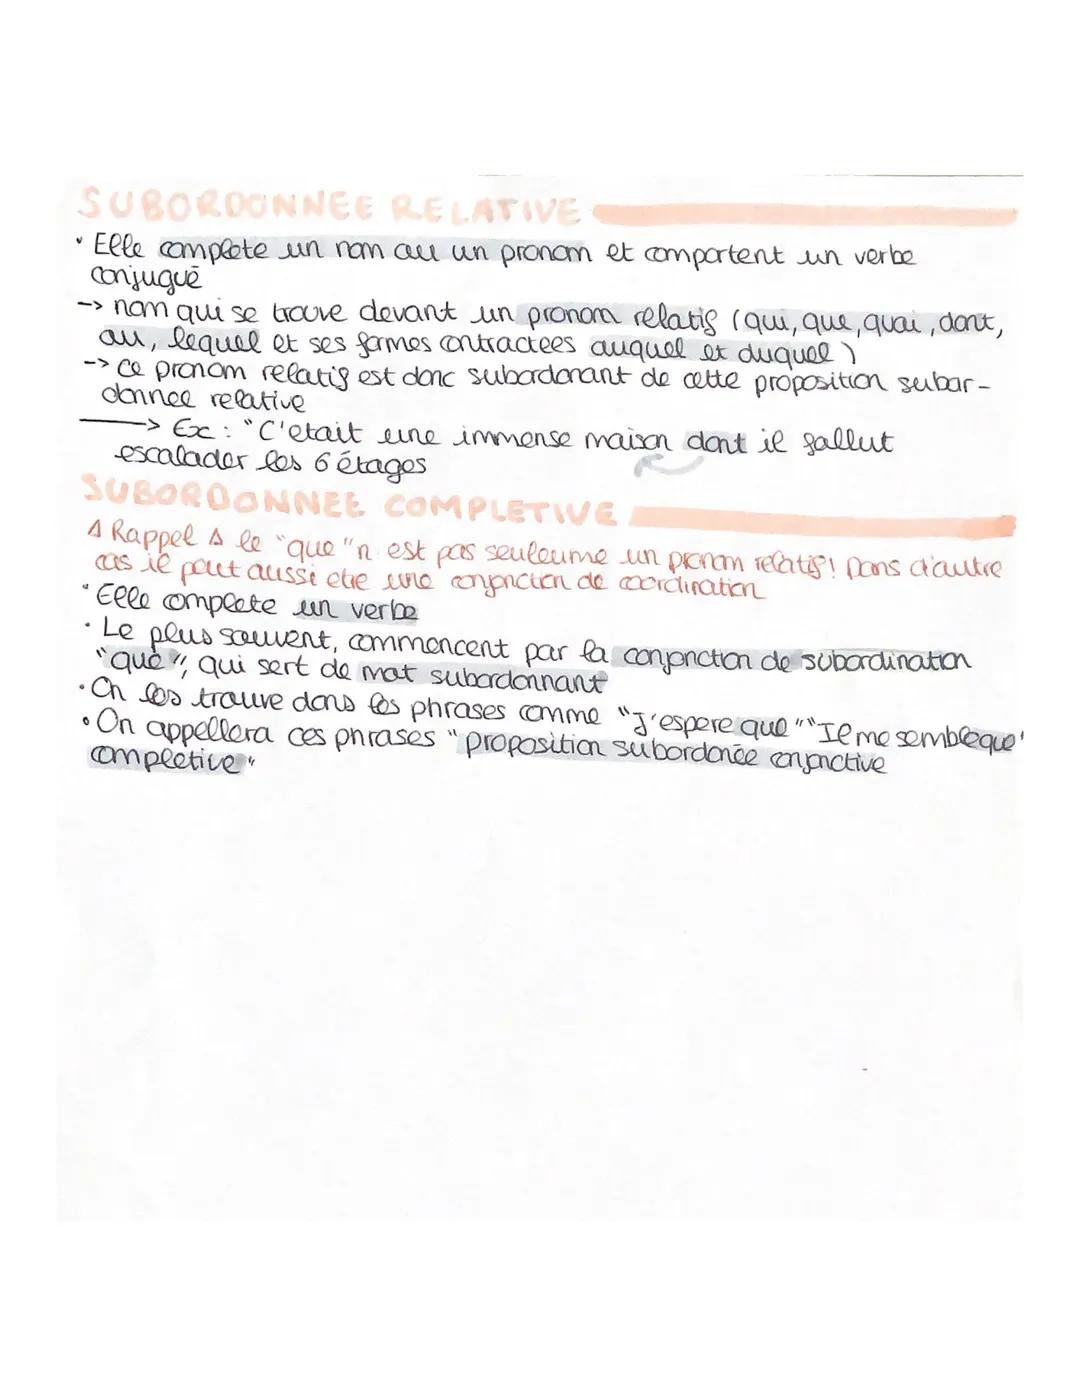 SUBORDONNEE RELATIVE
• Elle complete un nom ou un pronom et comportent un verbe
conjugué
-> nom qui se trouve devant un pronom relatif (qui, que, quoi, dont,
ou, lequel et ses formes contractees auquel et duquel)
-> ce pronom relatif est donc subordonant de cette proposition subor-
donnee relative
-> Ex : "C'etait une immense maison dont il fallut
escalader les 6 étages
SUBORDONNEE COMPLETIVE
Δ Rappel Δ le "que" n'est pas seuleume un pronom relatif! Dans d'autre
cas il peut aussi etre une conjonction de coordination
• Elle complete un verbe
• Le plus souvent, commencent par la conjonction de subordination
"que", qui sert de mot subordonnant
• On les trouve dans les phrases comme "J'espere que" "Il me semble que"
• On appellera ces phrases "proposition subordonée conjonctive
completive"